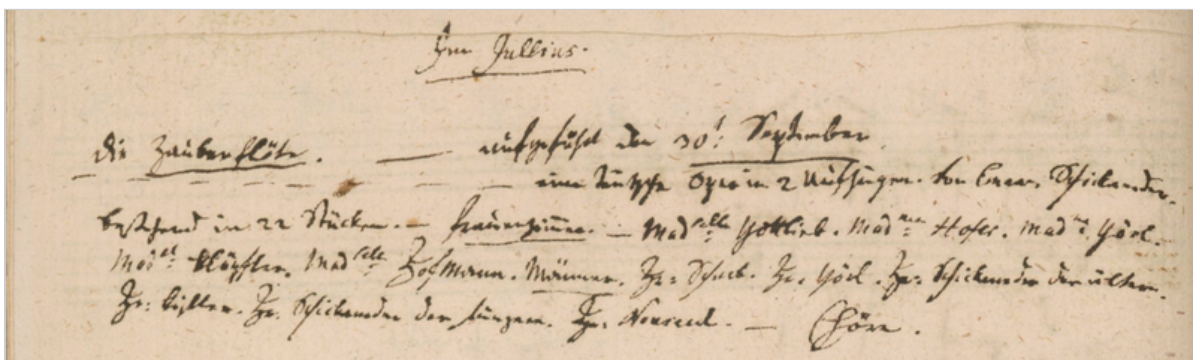 Im Jullius.
die Zauberflöte. — aufgeführt den 30t: September.
eine teutsche Oper in 2 Aufzügen. von Eman. Schickaneder.
bestehend in 22 Stücken. — frauenzimmer. — Mad:selle Gottlieb. Mad:me Hofer. Mad:me Görl.
Mad:me Klöpfler. Mad:selle Hofmann. Männer. Hr: Schack. Hr: Görl. Hr: Schickaneder der ältere.
Hr: Kistler. Hr: Schickaneder der Jüngere. Hr: Nouseul. — Chöre.